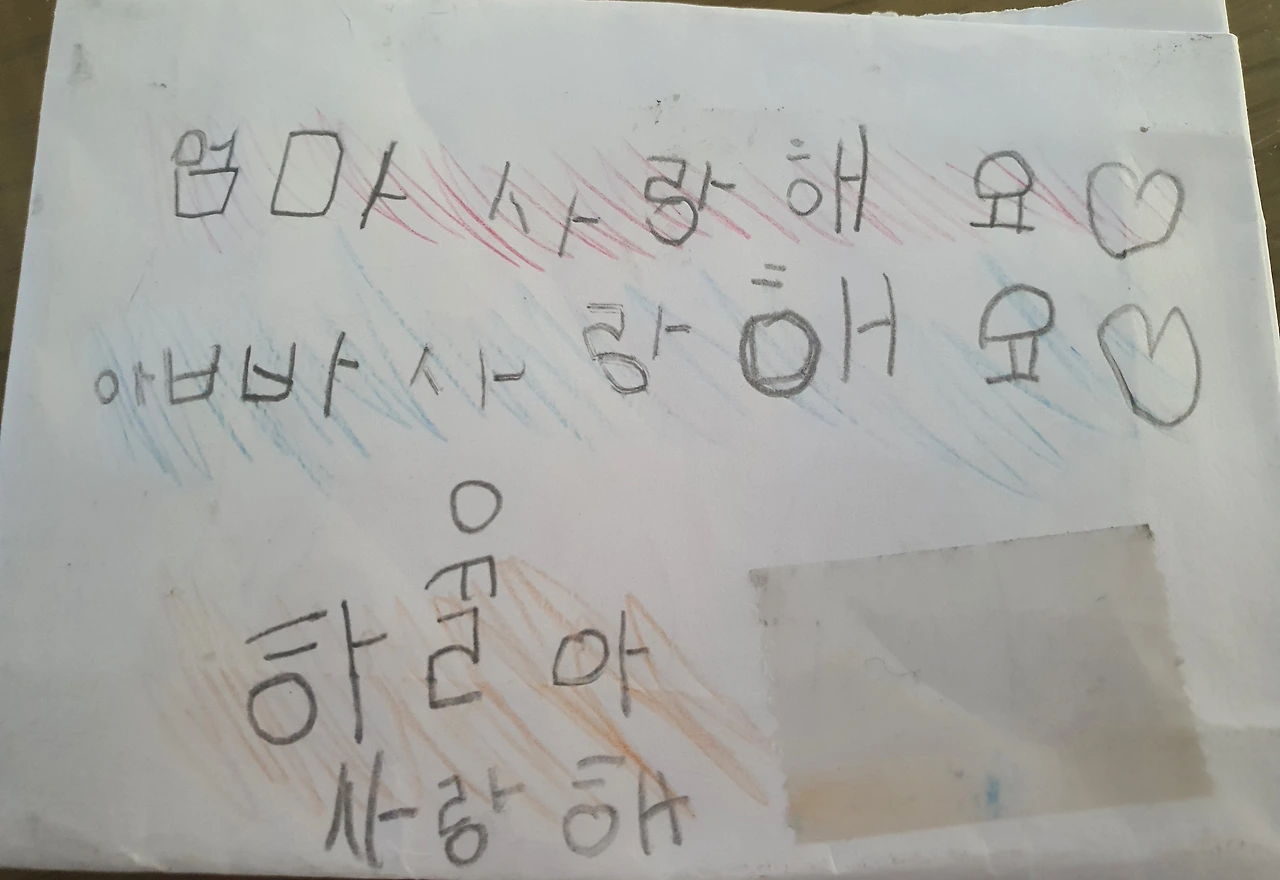 엄마 사랑해요♡
아빠 사랑해요♡
하율아
사랑해